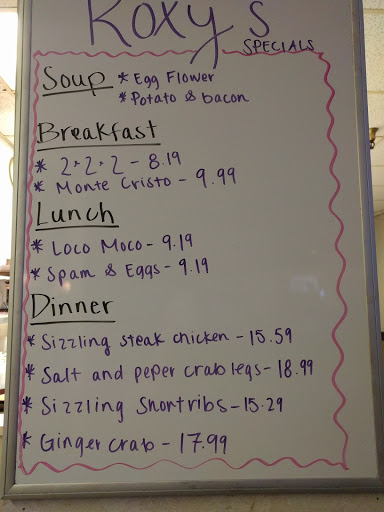 Roxy's
SPECIALS
Soup * Egg Flower
* Potato & bacon
Breakfast
* 2+2+2 - 8.19
* Monte Cristo - 9.99
Lunch
* Loco Moco - 9.19
* Spam & Eggs - 9.19
Dinner
* Sizzling steak chicken - 15.59
* Salt and peper crab legs - 18.99
* Sizzling Shortribs - 15.29
* Ginger crab - 17.99